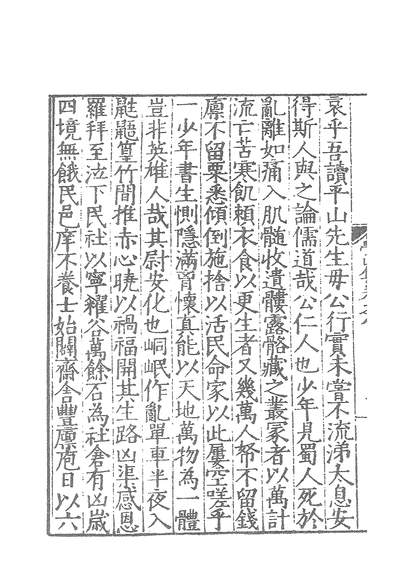 哀乎吾讀平山先生毋公行實未嘗不流涕太息安
得斯人與之論儒道哉公仁人也少年見蜀人死於
亂離如痛入肌髓收遺髏露骼藏之叢冢者以萬計
流亡苦寒飢頼衣食以更生者又幾萬人帑不留錢
廩不留粟悉傾倒施捨以活民命家以此屢空嗟乎
一少年書生惻隱滿胷懷真能以天地萬物為一體
豈非英雄人哉其尉安化也峒岷作亂單車半夜入
鼪鼯篁竹間推赤心曉以禍福開其生路凶渠感恩
羅拜至泣下民社以寧糴谷萬餘石為社倉有凶歲
四境無餓民邑庠不養士始闢齋舍豐廩庖日以六